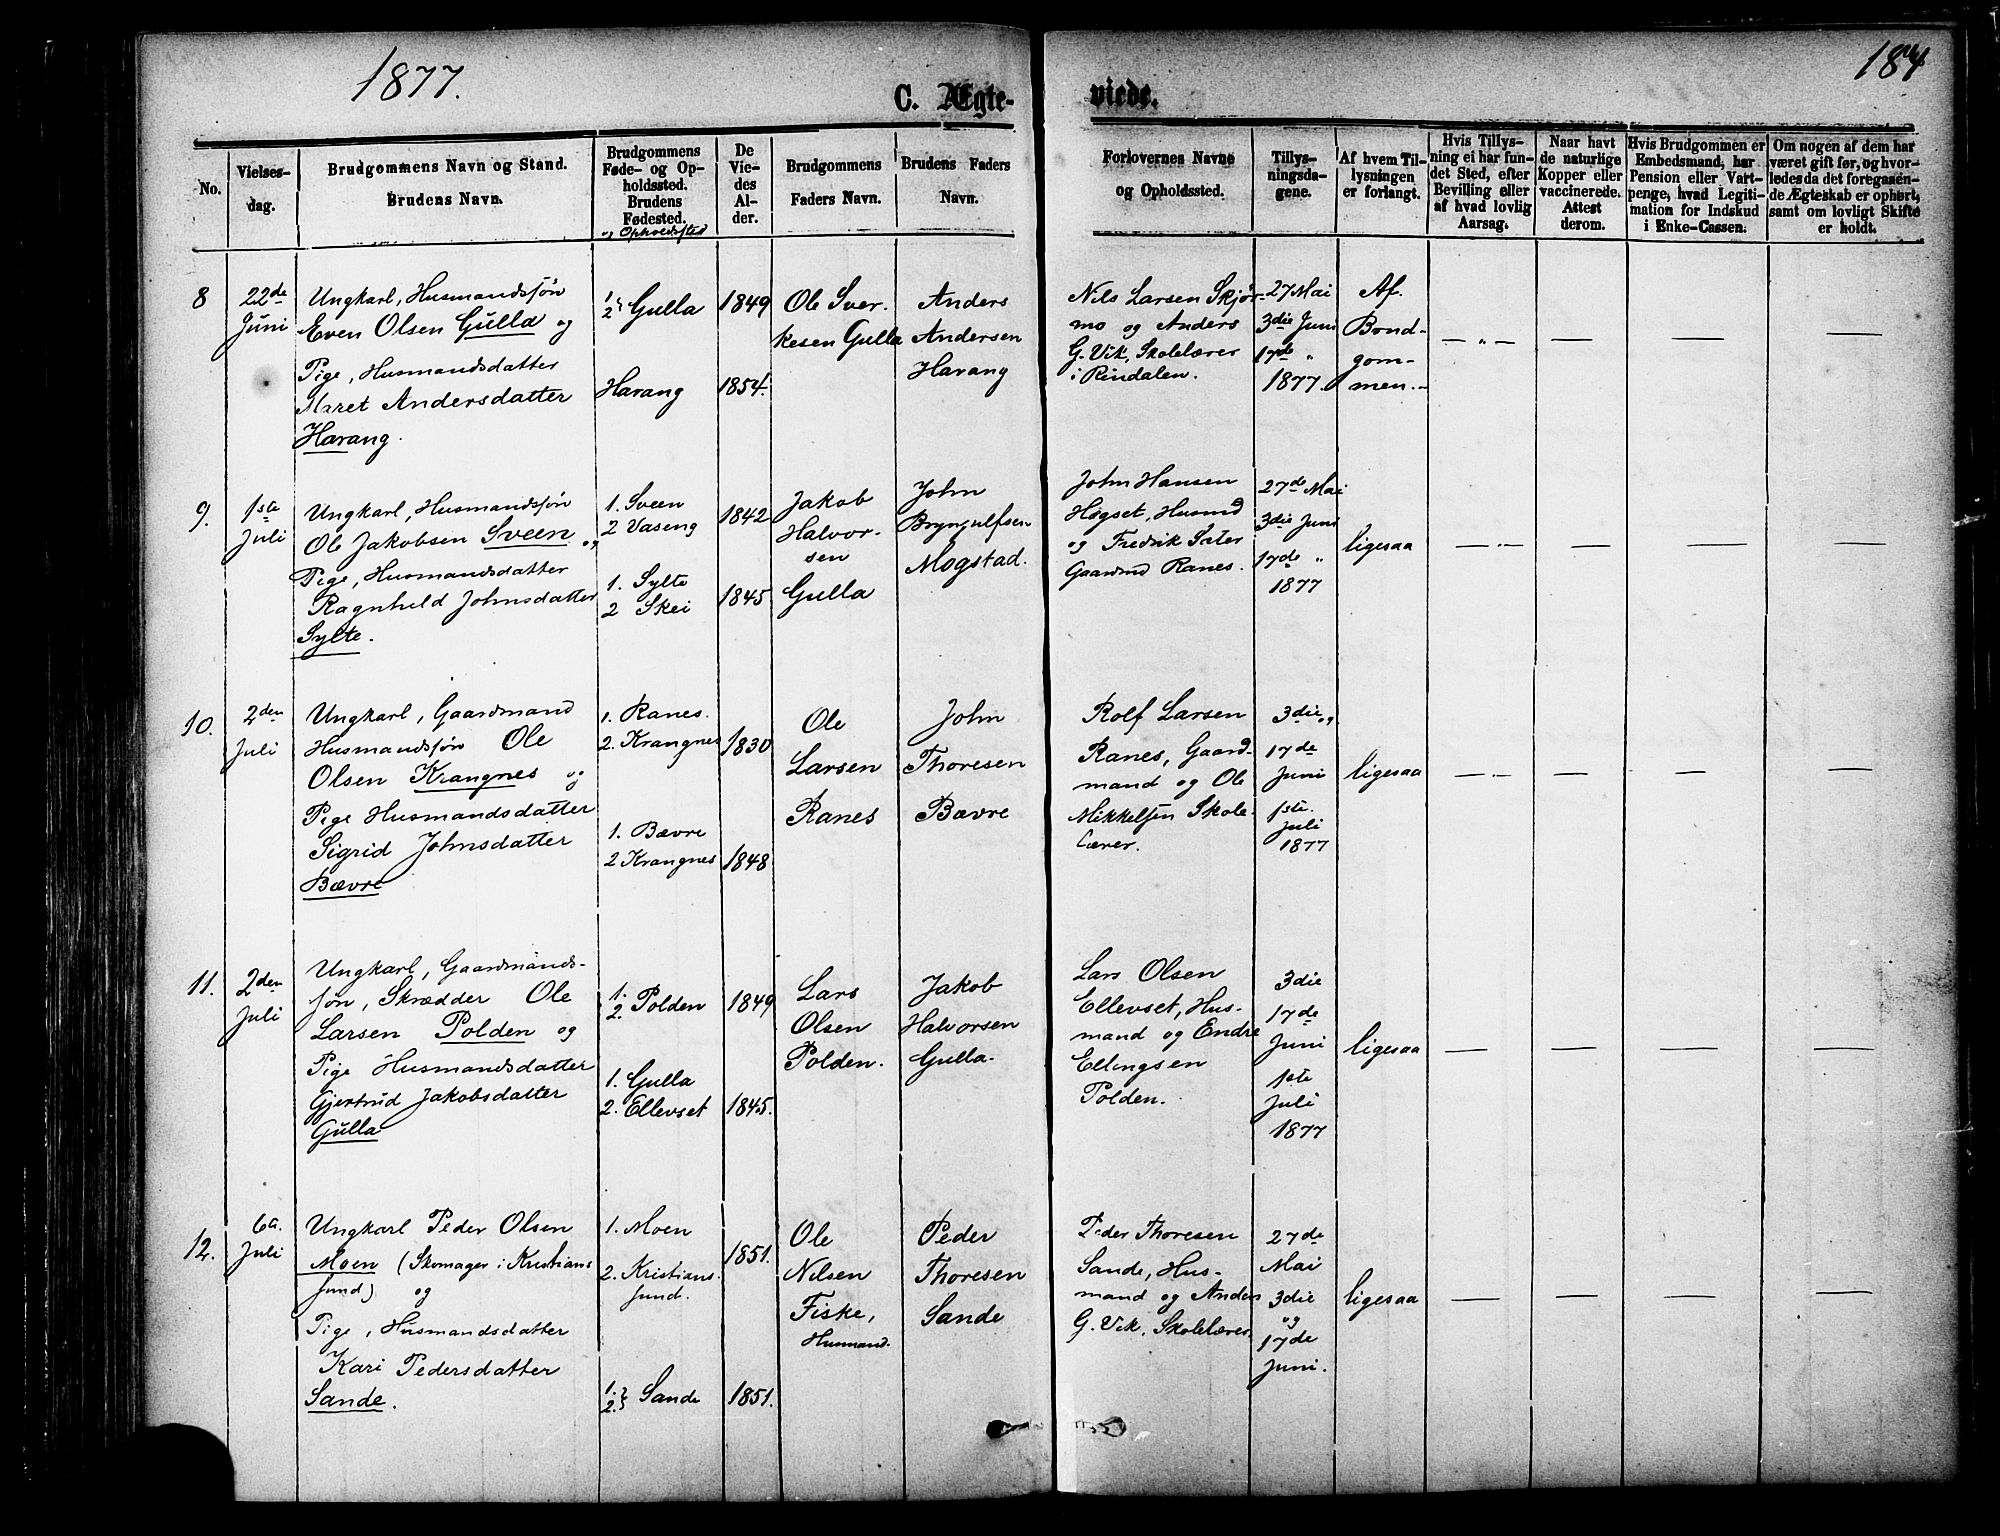 1877.
184
C. Ægte-
viede.
No.
Vielses-
dag.
Brudgommens Navn og Stand.
Brudens Navn.
Brudgommens
Føde- og Op-
holdssted.
Brudens
Fødested.
og Opholdssted
De
Vie-
des
Al-
der.
Brudgommens
Faders Navn.
Brudens Faders
Navn.
Forlovernes Navne
og Opholdssted.
Tillys-
ningsda-
gene.
Af hvem Til-
lysningen
er forlangt.
Hvis Tillys-
ning ei har fun-
det Sted, efter
Bevilling eller
af hvad lovlig
Aarsag.
Naar havt
de naturlige
Kopper eller
vaccinerede.
Attest
derom.
Hvis Brudgommen er
Embedsmand, har
Pension eller Vart-
penge, hvad Legiti-
mation for Indskud
i Enke-Cassen.
Om nogen af dem har
været gift før, og hvor-
ledes da det foregaaen-
de Ægteskab er ophørt,
samt om lovligt Skifte
er holdt.
8
22de
Juni
Ungkarl, Husmandssøn
Even Olsen Gulla og
Pige, Husmandsdatter
Maret Andersdatter
Harang.
1
2 } Gulla
Harang
1849
1854.
Ole Sver-
kesen Gulla
Anders
Andersen
Harang
Nils Larsen Skjør-
mo og Anders
G. Vik, Skolelærer
i Rindalen.
27 Mai
3die Juni
17de "
1877.
Af
Brud-
gom-
men.-
— " —
—
—
—
9.
1ste
Juli
Ungkarl, Husmandssøn
Ole Jakobsen Sveen og
Pige, Husmandsdatter
Ragnhild Johnsdatter
Sylte.
1. Sveen
2 Vaseng
1. Sylte
2 Skei
1842
1845
Jakob
Halvor-
sen
Gulla
John
Brynjulfsen
Mogstad.
John Hansen
Høgset, Husmd
og Fredrik Sæter
Gaardmd Ranes.
27de Mai
3die Juni
17de "
1877
ligesaa
— " —
—
—
—
10.
2den
Juli
Ungkarl, Gaardmand
Husmandssøn Ole
Olsen Krangnes og
Pige Husmandsdatter
Sigrid Johnsdatter
Bævre
1. Ranes.
2. Krangnes
1. Bævre
2 Krangnes
1830
1848
Ole
Larsen
Ranes
John
Thoresen
Bævre
Rolf Larsen
Ranes, Gaard-
mand og Ole
Mikkelsen Skole-
lærer.
3die og
17de
Juni
1ste
Juli
1877
ligesaa
— " —
—
—
—
11.
2den
Juli
Ungkarl, Gaardmands-
søn, Skrædder Ole
Larsen Polden og
Pige Husmandsdatter
Gjertrud Jakobsdatter
Gulla
1.
2. } Polden
1. Gulla
2. Ellevset
1849
1845.
Lars
Olsen
Polden.
Jakob
Halvorsen
Gulla.
Lars Olsen
Ellevset, Hus-
mand og Endre
Ellingsen
Polden.
3die
17de
Juni
1ste
Juli
1877
ligesaa
—
—
—
—
12.
6te
Juli
Ungkarl Peder Olsen
Moen (Skomager i Kristians
sund) og
Pige, Husmandsdatter
Kari Pedersdatter
Sande.
1. Moen
2. Kristians-
sund.
1.
2. } Sande
1851.
1851.
Ole
Nilsen
Fiske,
Husmand.
Peder
Thoresen
Sande
Peder Thoresen
Sande, Hus-
mand og Anders
G. Vik, Skolelærer
27de
Mai
3die
og
17de
Juni.
ligesaa
—
—
—
—